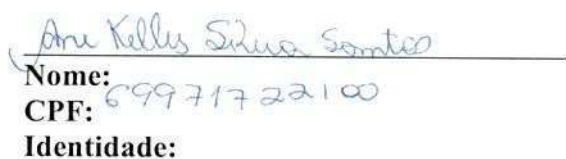 Ane Kelly Silva Santos
Nome:
CPF: 69971722100
Identidade: